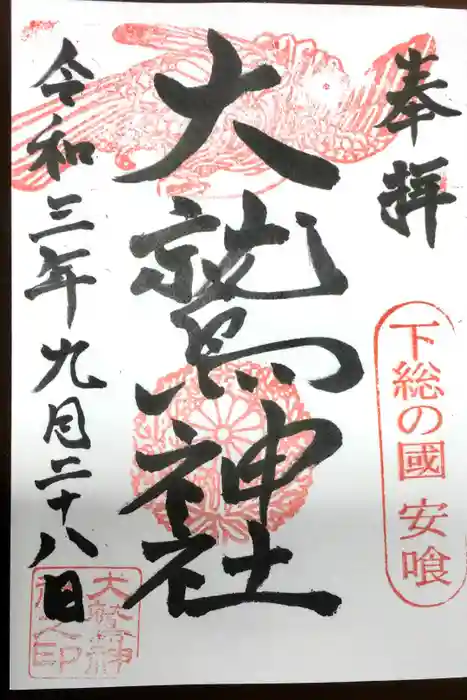 奉拝
下総の國 安喰
大鷲神社
令和三年九月二十八日
大鷲神
社之印